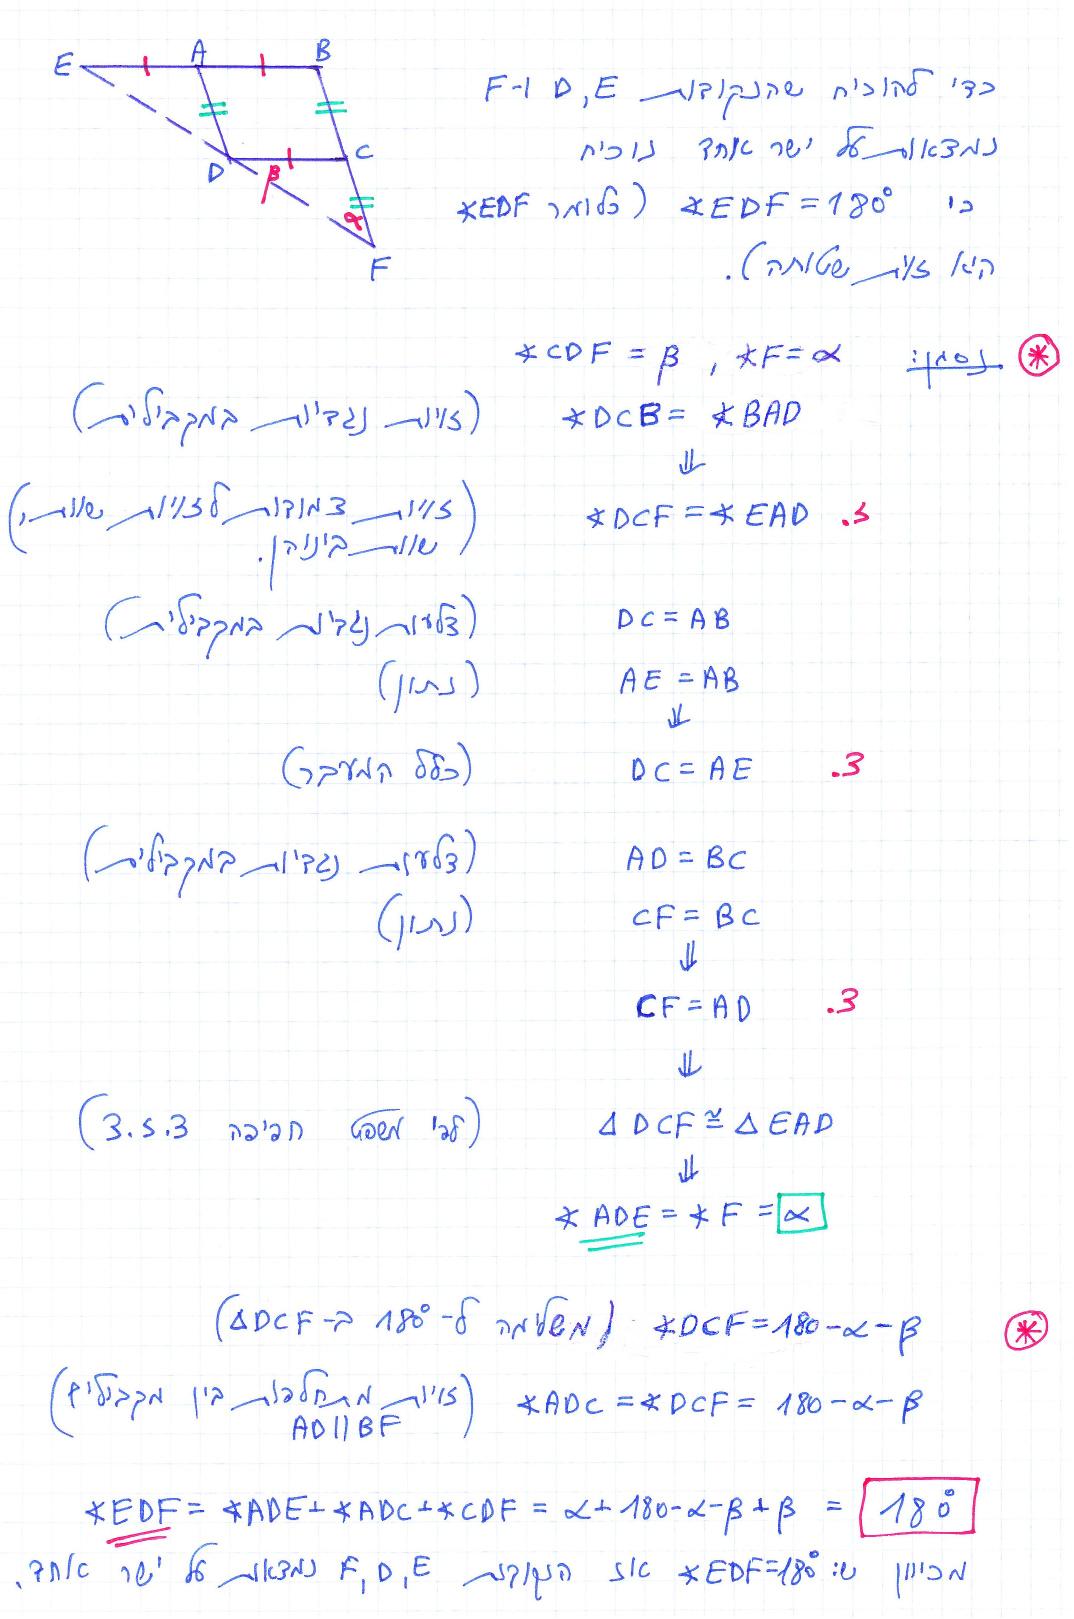 E A B
D C
β α
F
כדי להוכיח שהנקודות E, D ו-F
נמצאות על ישר אחד נוכיח
כי ∢EDF = 180° (כלומר ∢EDF
היא זוית שטוחה).
נסמן: ∢F = α , ∢CDF = β
∢DCB = ∢BAD (זויות נגדיות במקבילית)
⇓
ז. ∢DCF = ∢EAD (זויות צמודות לזויות שוות,
שוות ביניהן.)
DC = AB (צלעות נגדיות במקבילית)
AE = AB (נתון)
⇓
צ. DC = AE (כלל המעבר)
AD = BC (צלעות נגדיות במקבילית)
CF = BC (נתון)
⇓
צ. CF = AD
⇓
Δ DCF ≅ Δ EAD (לפי משפט חפיפה צ.ז.צ)
⇓
∢ADE = ∢F = α
∢DCF = 180 - α - β (משלימה ל-180° ב-ΔDCF)
∢ADC = ∢DCF = 180 - α - β (זויות מתחלפות בין מקבילים
AD || BF)
∢EDF = ∢ADE + ∢ADC + ∢CDF = α + 180 - α - β + β = 180°
מכיוון ש: ∢EDF = 180° אז הנקודות F, D, E נמצאות על ישר אחד.